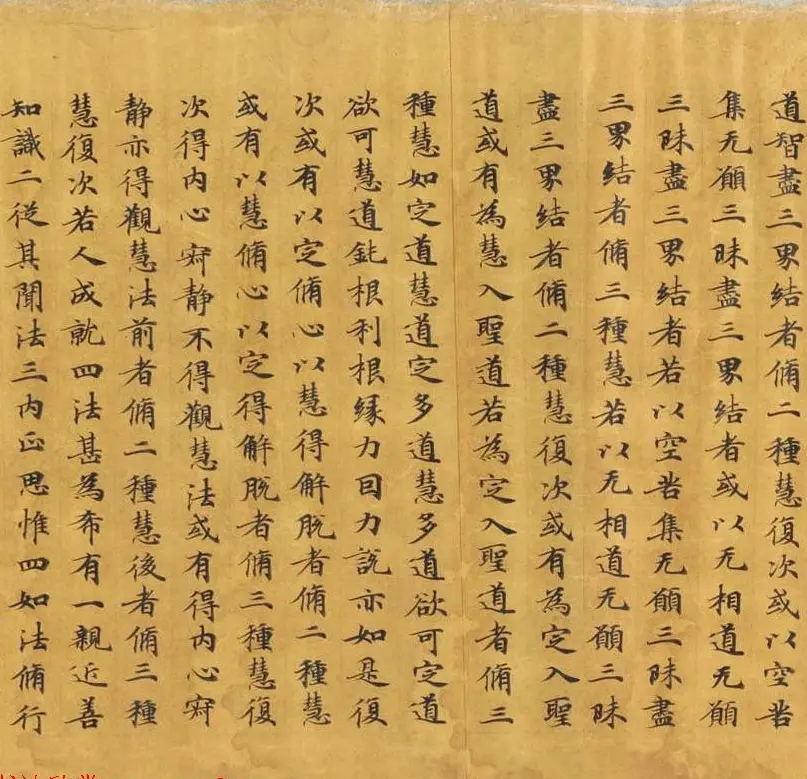 道智盡三界結者脩二種慧復次或以空苦
集无願三昧盡三界結者或以无相道无願
三昧盡三界結者若以空苦集无願三昧盡
三界結者脩三種慧若以无相道无願三昧
盡三界結者脩二種慧復次或有為定入聖
道或有為慧入聖道若為定入聖道者脩三
種慧如定道慧道定多道慧多道欲可定道
欲可慧道鈍根利根緣力因力說亦如是復
次或有以定脩心以慧得解脫者脩二種慧
或有以慧脩心以定得解脫者脩三種慧復
次得内心寂静不得觀慧法或有得内心寂
静亦得觀慧法前者脩二種慧後者脩三種
慧復次若人成就四法甚為希有一親近善
知識二從其聞法三内正思惟四如法脩行